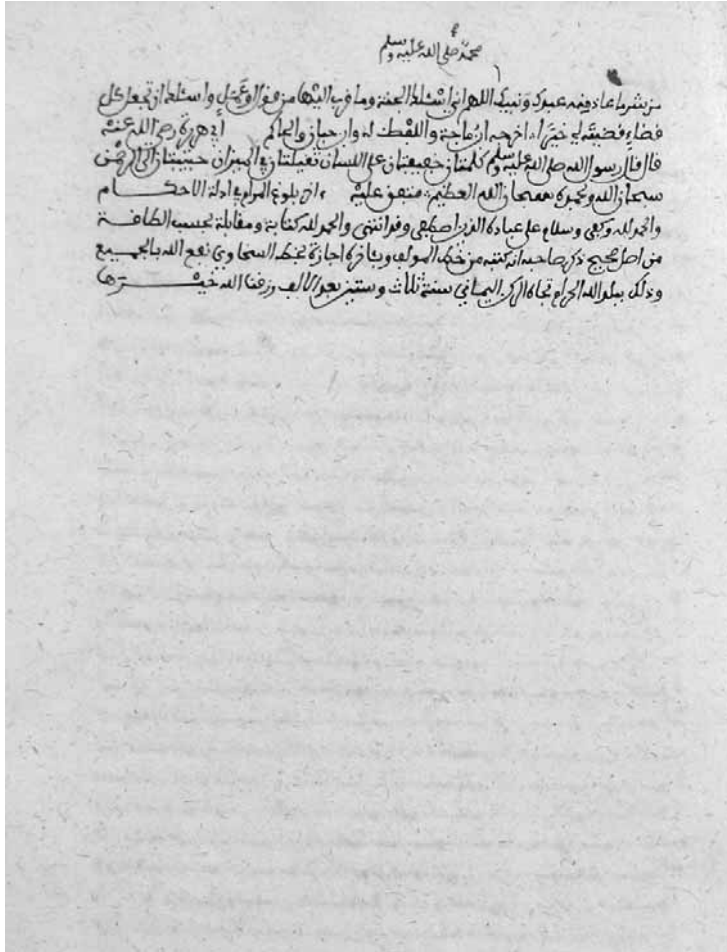 محمد صلى الله عليه وسلم
من شر ما عاذ منه عبدك ونبيك اللهم اني اسئلك الجنة وما قرب اليها من قول وعمل واسئلك ان تجعل كل
قضاء قضيته لي خيرا اخرجه ابن ماجة واللفظ له وابن حبان والحاكم أبي هريرة رضي الله عنه
قال قال رسول الله صلى الله عليه وسلم كلمتان خفيفتان على اللسان ثقيلتان في الميزان حبيبتان الى الرحمن
سبحان الله وبحمده سبحان الله العظيم متفق عليه بلوغ المرام في ادلة الاحكام
والحمد لله وكفى وسلام على عباده الذين اصطفى والحمد لله كتابة ومقابلة بحسب الطاقة
من اصل صحيح ذكر صاحبه انه كتبه من خط المولف اجازة بخط السخاوي نفع الله بالجميع
وذلك ببلد الله الحرام تجاه الركن اليماني سنة ثلاث وستين بعد الالف رزقنا الله خيرها